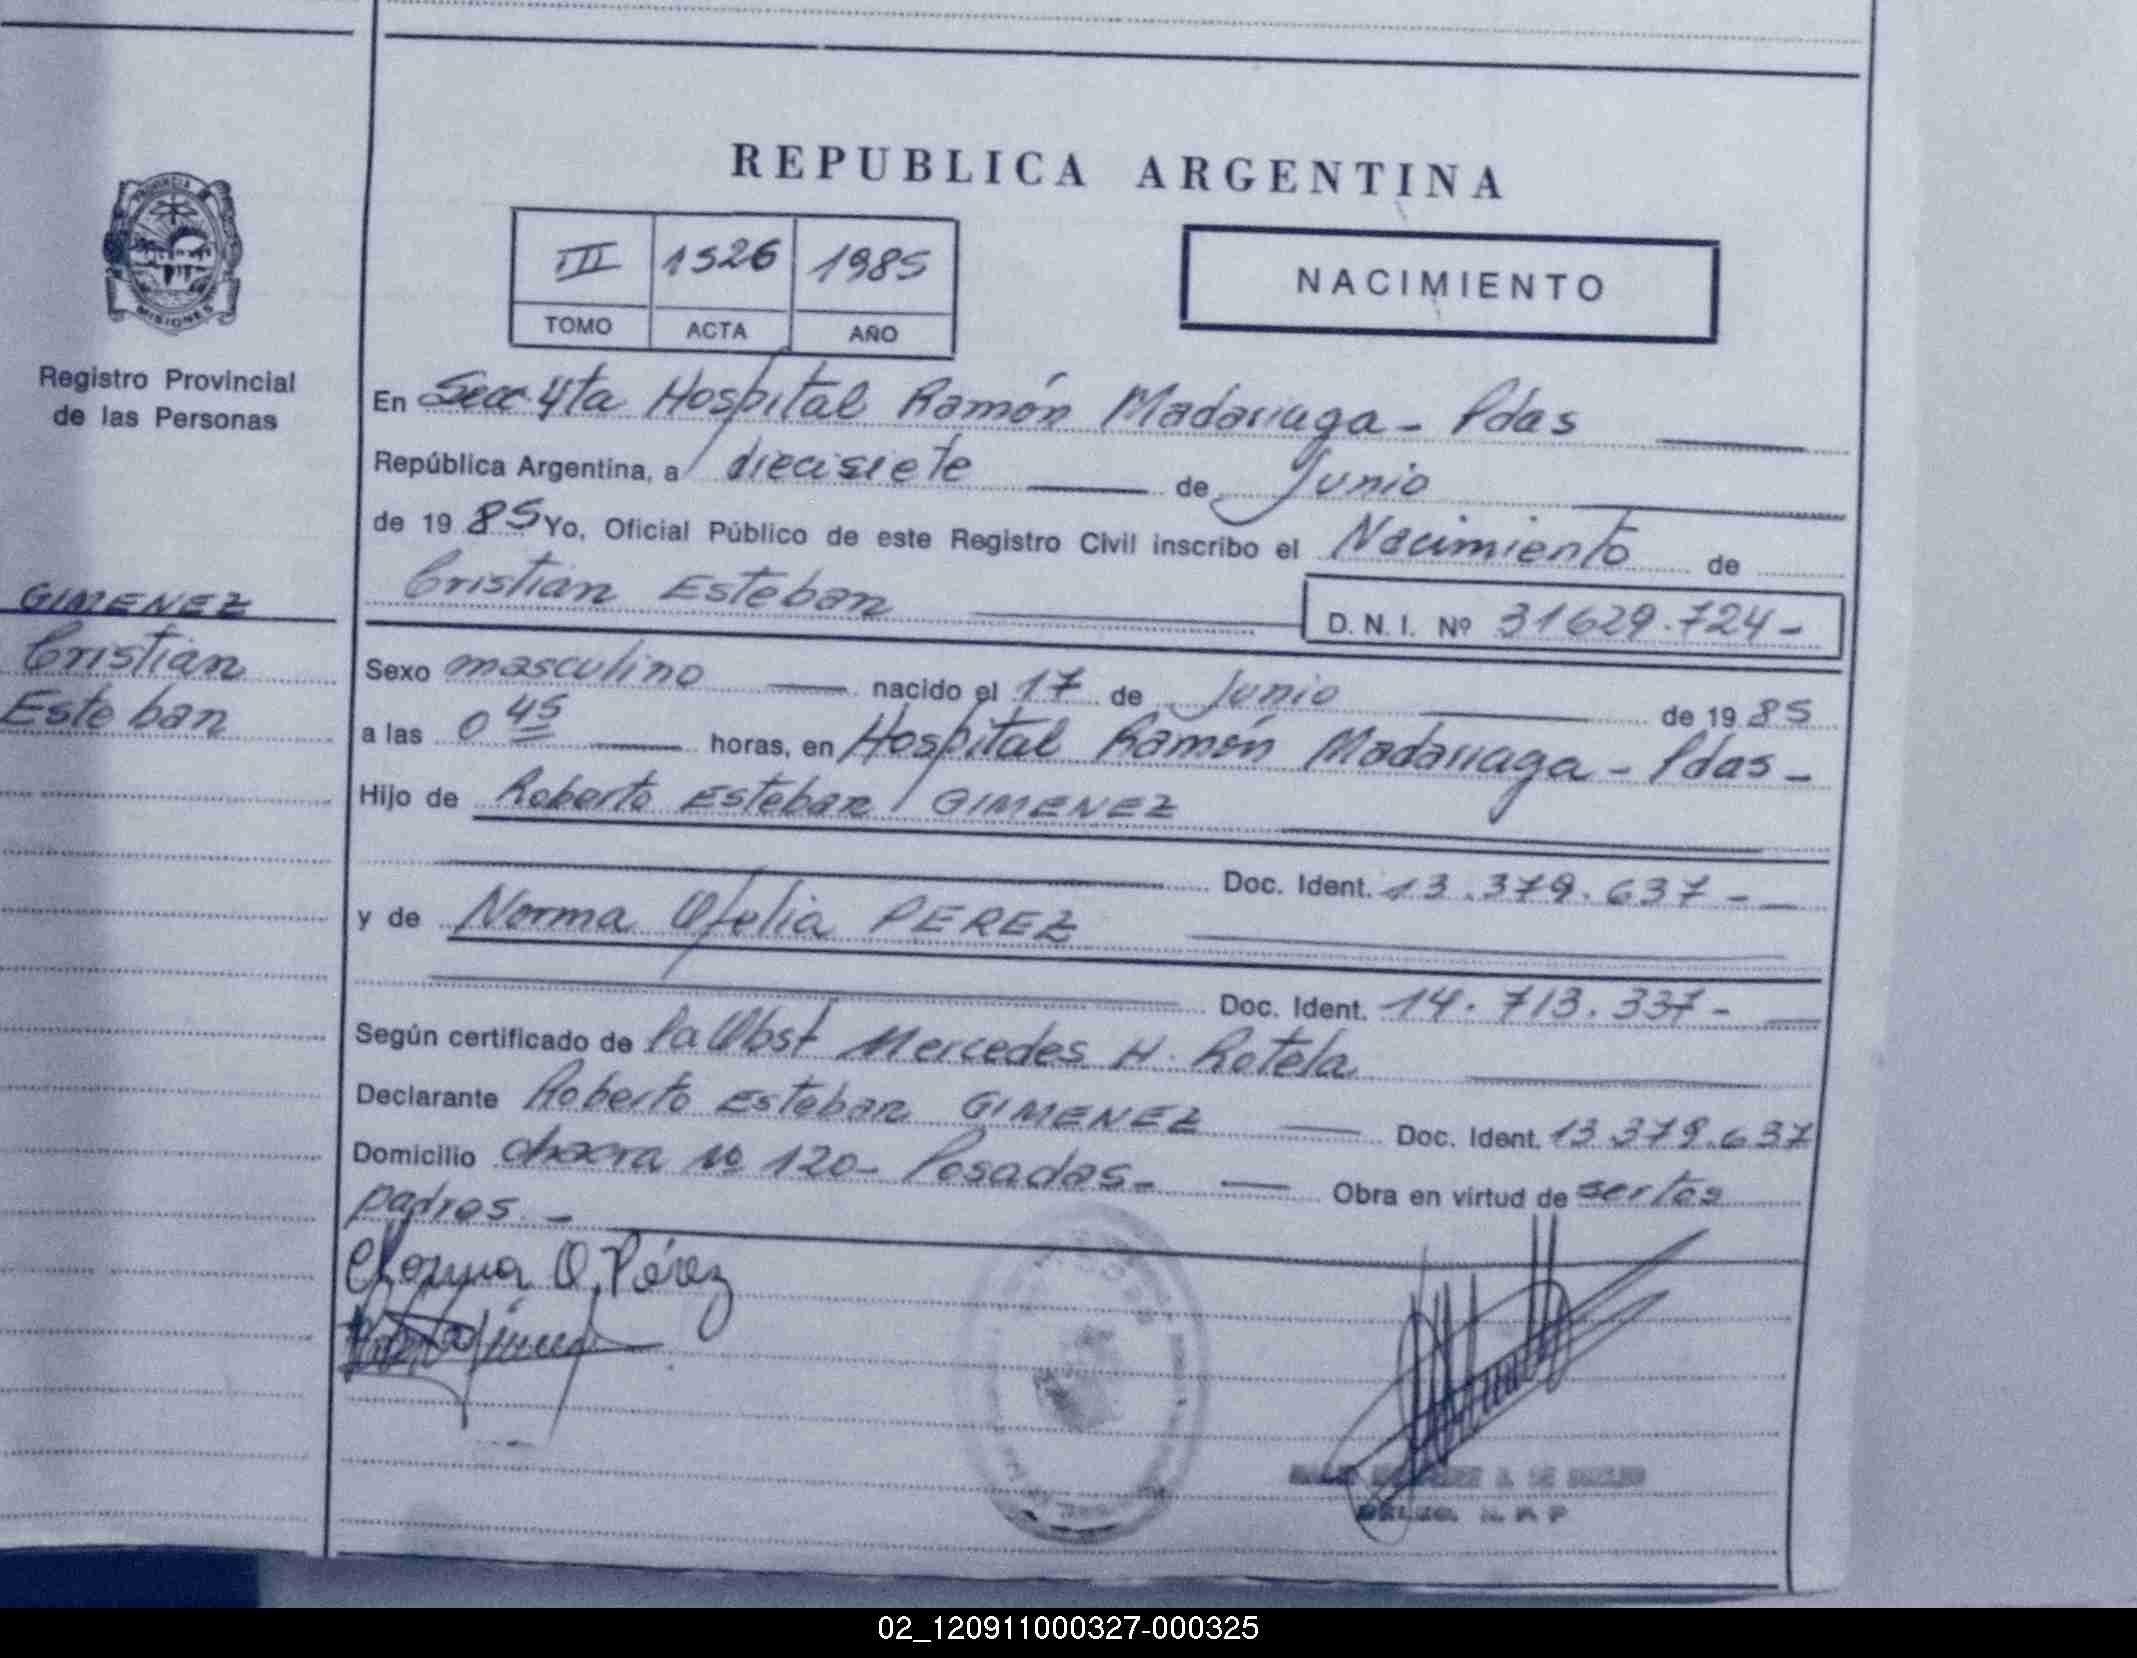 REPUBLICA ARGENTINA
III 1526 1985
TOMO ACTA AÑO
NACIMIENTO
PROVINCIA
MISIONES
Registro Provincial
de las Personas
GIMENEZ
Cristian
Esteban
En Secc 4ta Hospital Ramón Madariaga - Pdas
República Argentina, a diecisiete de Junio
de 19 85 Yo, Oficial Público de este Registro Civil inscribo el Nacimiento de
Cristian Esteban D. N. I. Nº 31629.724-
Sexo masculino nacido el 17 de Junio de 19 85
a las 0 45 horas, en Hospital Ramón Madariaga - Pdas -
Hijo de Roberto Esteban GIMENEZ
Doc. Ident. 13.379.637 -
y de Norma Ofelia PEREZ
Doc. Ident. 14.713.337 -
Según certificado de la Obst Mercedes H. Rotela
Declarante Roberto Esteban GIMENEZ Doc. Ident. 13.379.637
Domicilio chacra Nº 120 - Posadas - Obra en virtud de ser los
padres -
Norma O. Pérez
02_120911000327-000325